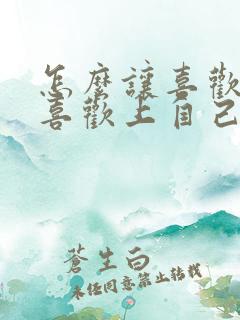 怎麼讓喜歡
喜歡上自己
蒼生白
未經同意禁止轉載